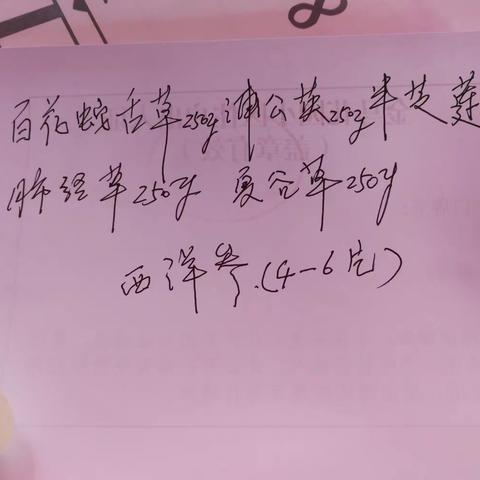 百花蛇舌草250g蒲公英250g半芝莲
肺経草250g 夏谷草250g
西洋参.(4-6片)